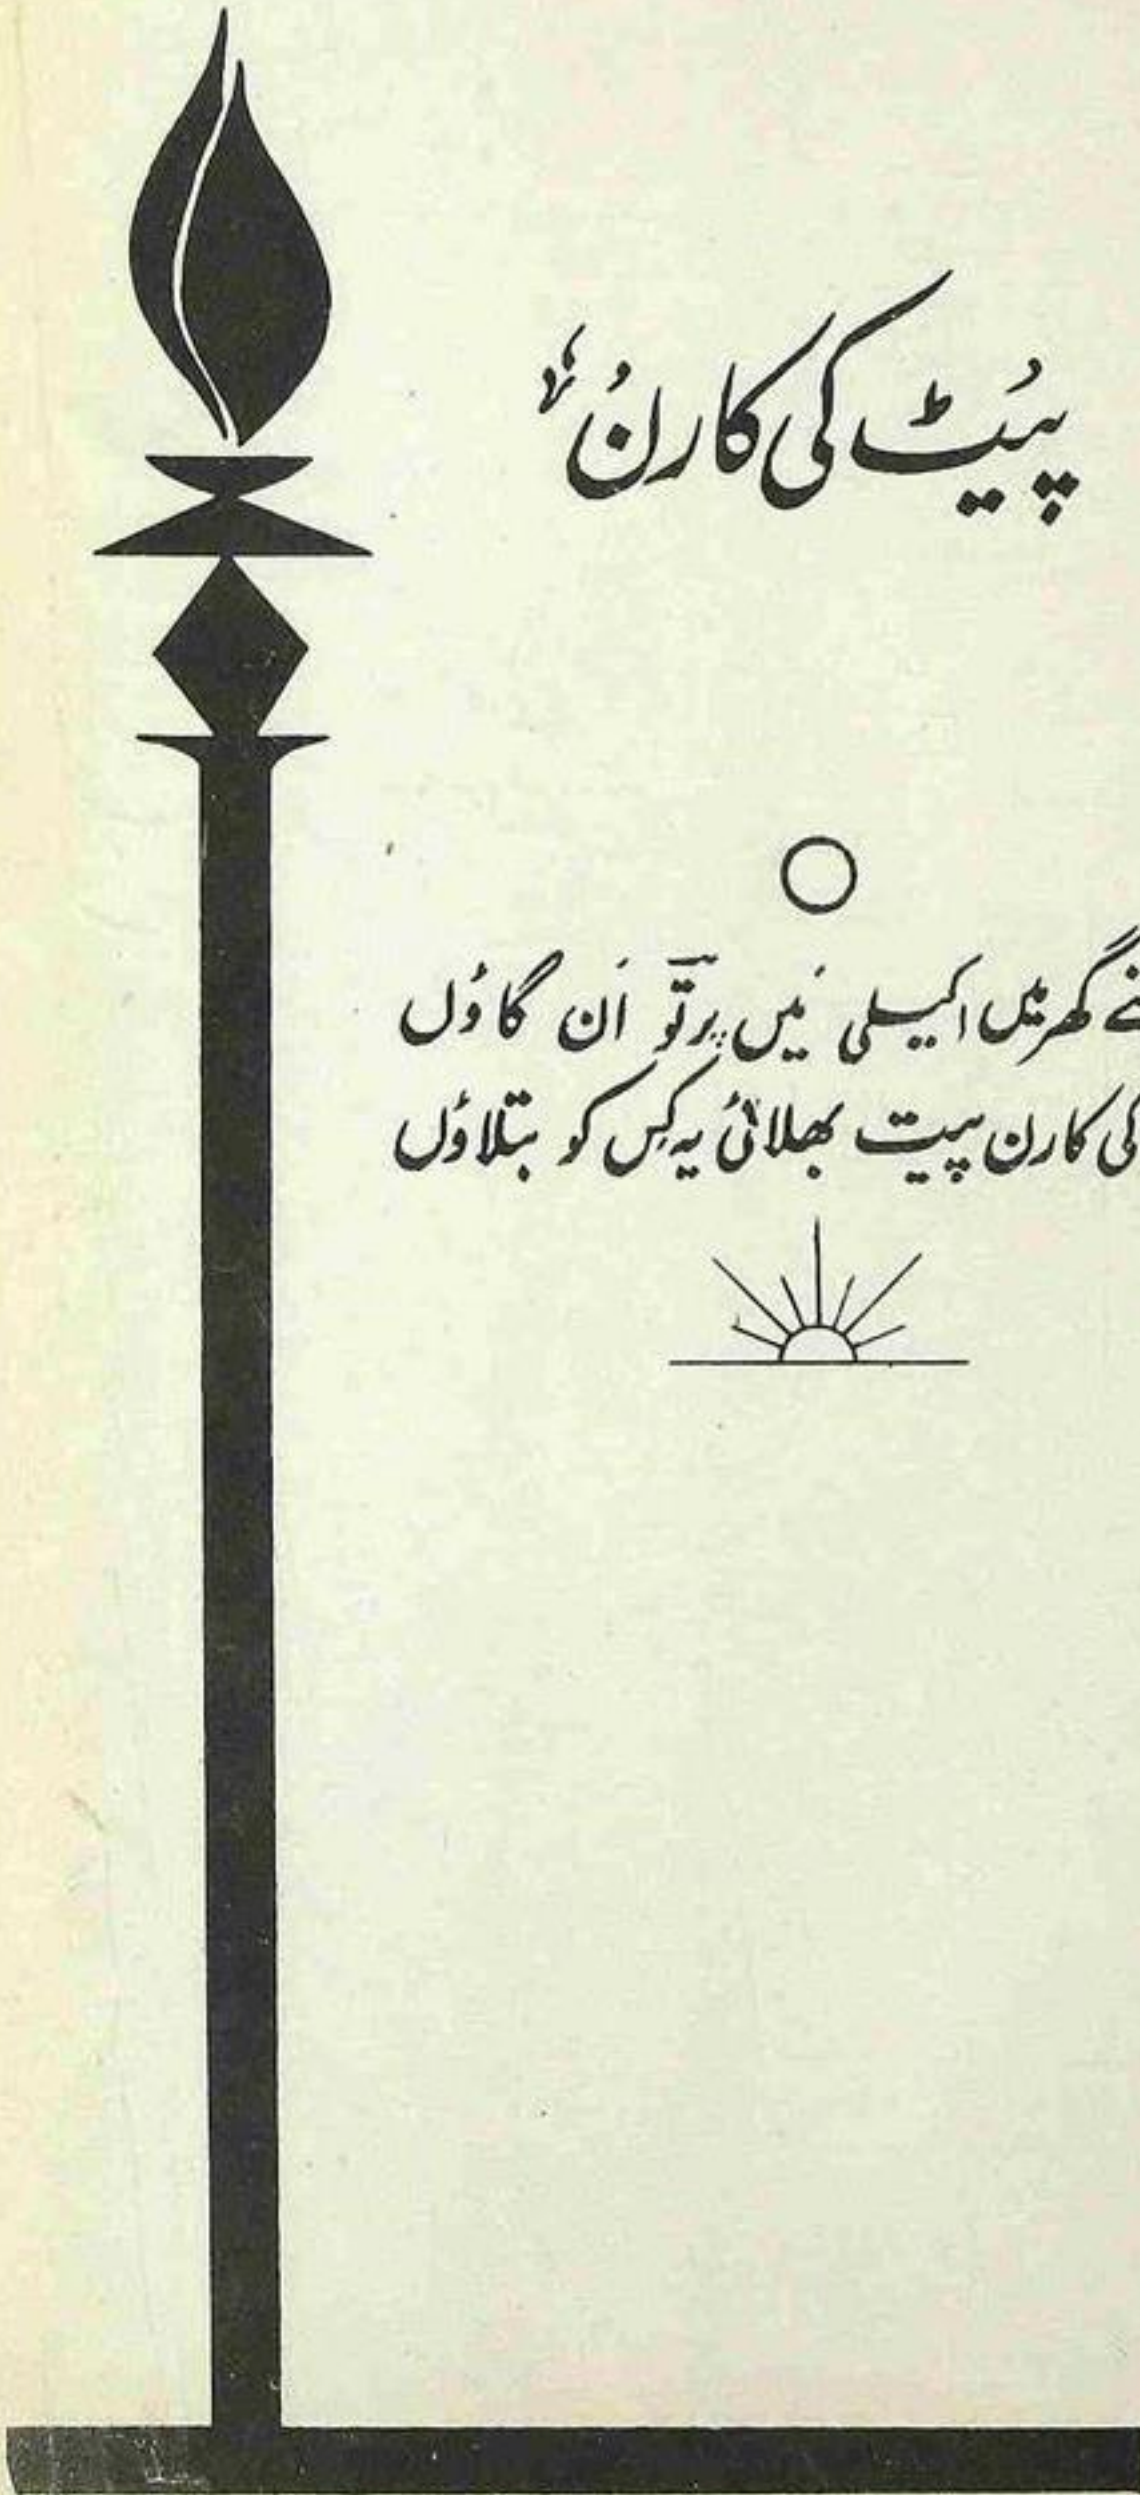 پیٹ کی کارن
گھر میں اکیلی میں پر تو اَن گاؤں
کی کارن پیت بھلائی یہ کِس کو بتلاؤں